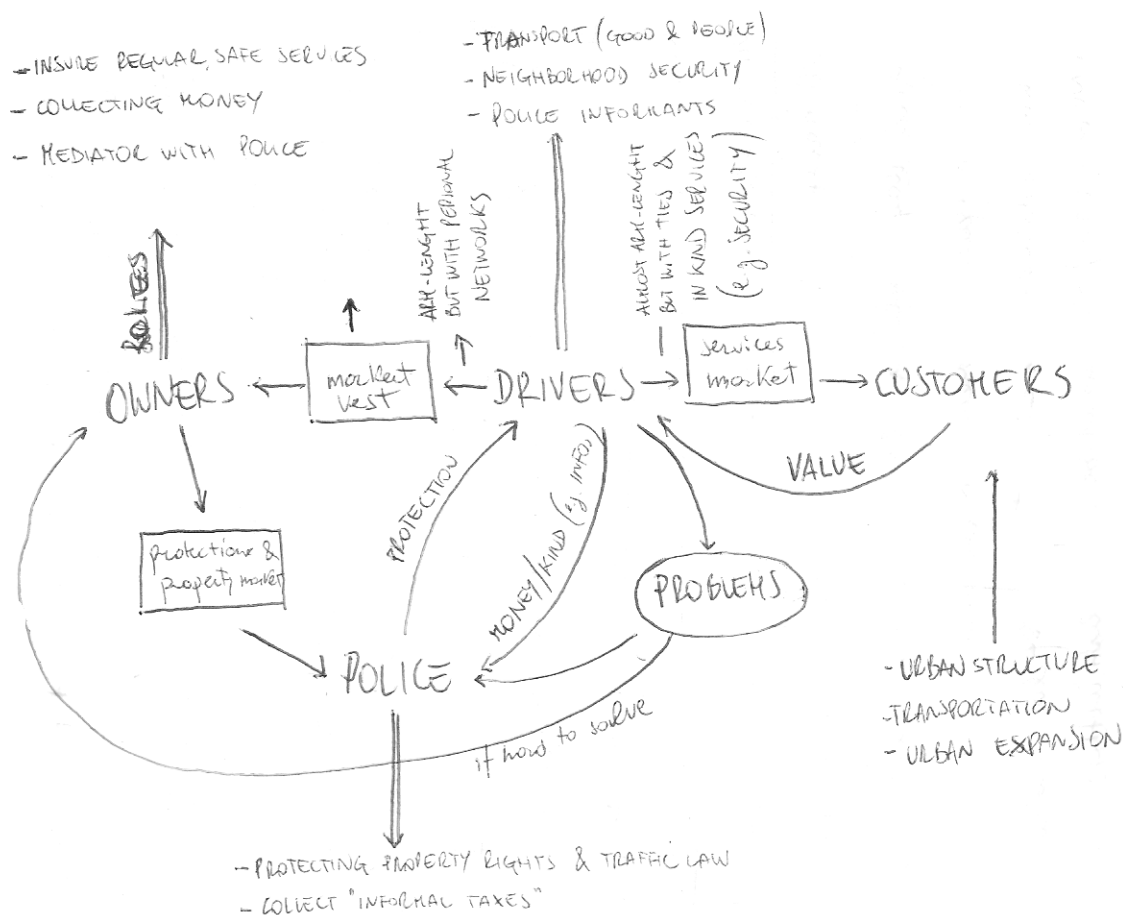 - INSURE REGULAR, SAFE SERVICES
- COLLECTING MONEY
- MEDIATOR WITH POLICE
- TRANSPORT (GOOD & PEOPLE)
- NEIGHBORHOOD SECURITY
- POLICE INFORMANTS
ARM-LENGHT
BUT WITH PERSONAL
NETWORKS
ALMOST ARM-LENGHT
BUT WITH TIES &
IN KIND SERVICES
(e.g. SECURITY)
OWNERS
market
vest
DRIVERS
services
market
CUSTOMERS
VALUE
PROTECTION
MONEY/KIND (e.g. INFOS)
protection &
property market
PROBLEMS
POLICE
if hard to solve
- URBAN STRUCTURE
- TRANSPORTATION
- URBAN EXPANSION
- PROTECTING PROPERTY RIGHTS & TRAFFIC LAW
- COLLECT "INFORMAL TAXES"